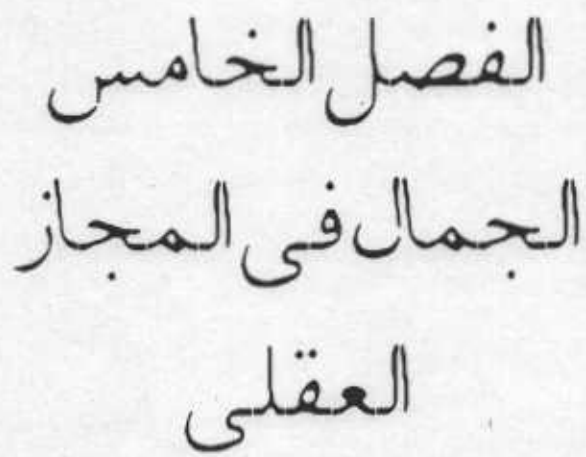 الفصل الخامس
الجمال فى المجاز
العقلى